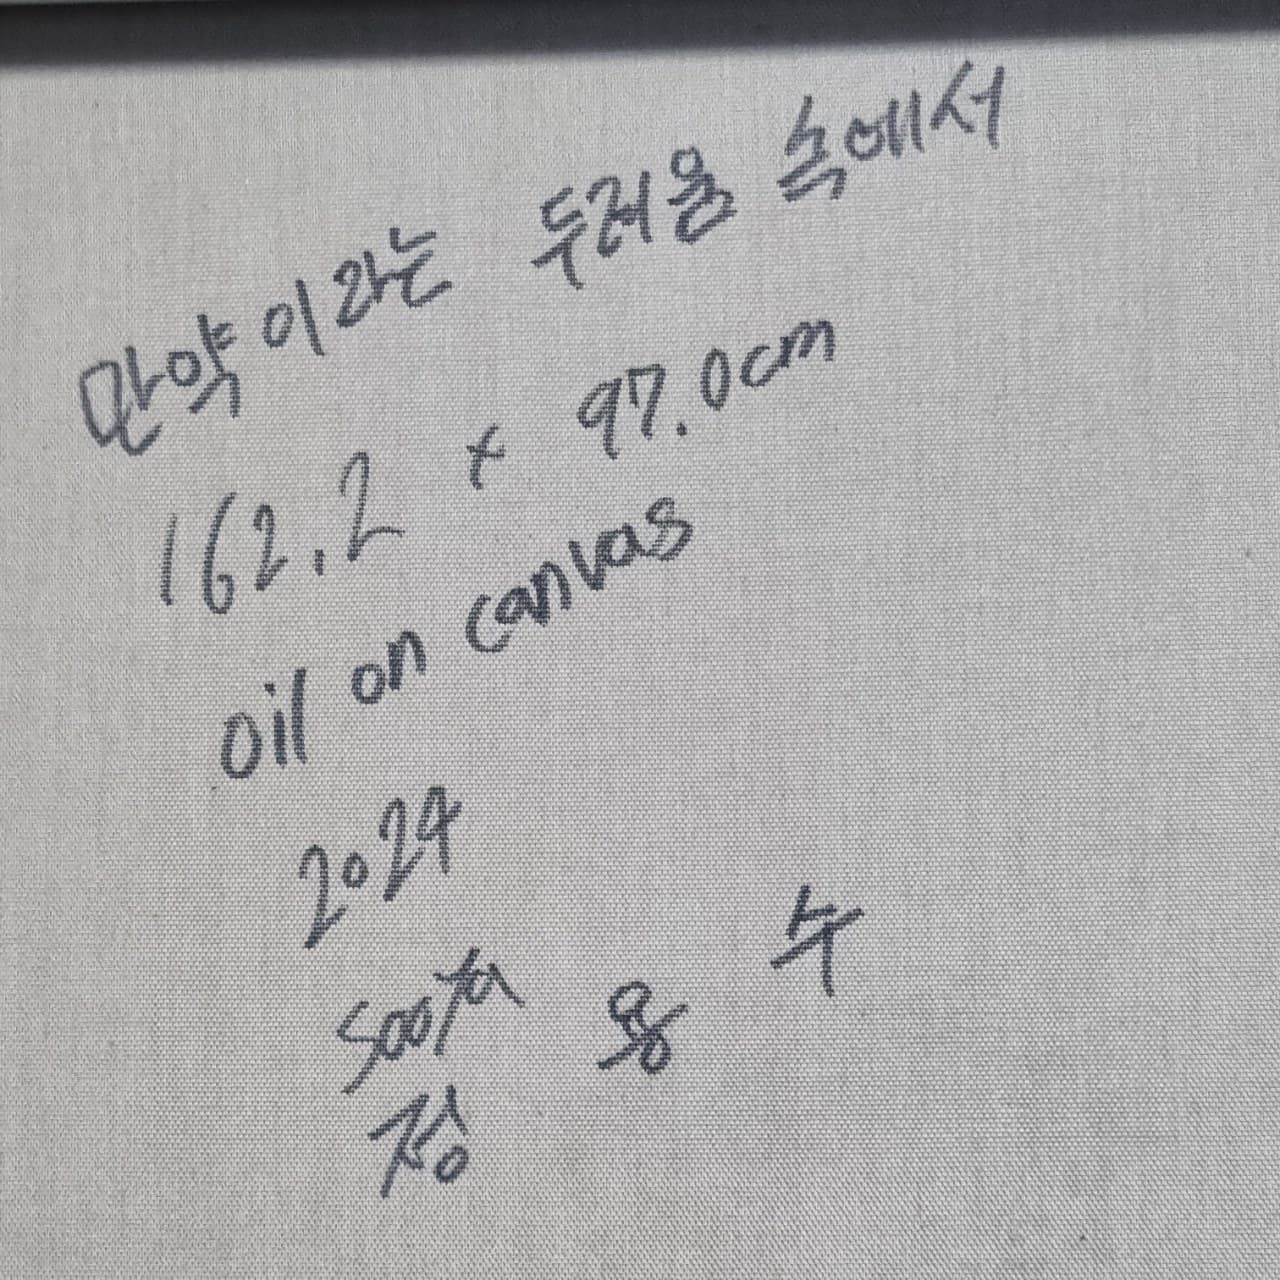 만약이라는 두려움 속에서
162.2 x 97.0cm
oil on canvas
2024
soota
장 용 수